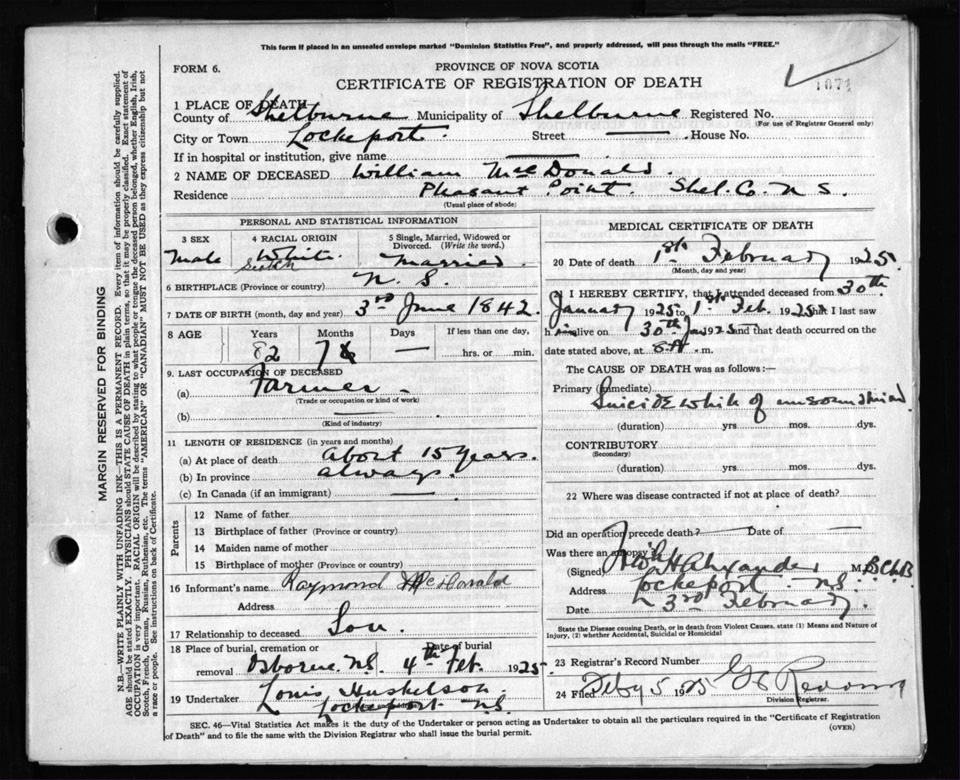 This form if placed in an unsealed envelope marked "Dominion Statistics Free", and properly addressed, will pass through the mails "FREE."
FORM 6.
PROVINCE OF NOVA SCOTIA
CERTIFICATE OF REGISTRATION OF DEATH
1074
1 PLACE OF DEATH
County of Shelburne Municipality of Shelburne Registered No.
(For use of Registrar General only)
City or Town Lockeport Street — House No.
If in hospital or institution, give name —
2 NAME OF DECEASED William McDonald.
Residence Pleasant Point. Shel. Co. N S.
(Usual place of abode)
PERSONAL AND STATISTICAL INFORMATION
3 SEX 4 RACIAL ORIGIN 5 Single, Married, Widowed or Divorced. (Write the word.)
Male White. Scotch Married.
6 BIRTHPLACE (Province or country) N. S.
7 DATE OF BIRTH (month, day and year) 3rd June 1842.
8 AGE Years Months Days If less than one day,
82 7 — hrs. or min.
9. LAST OCCUPATION OF DECEASED
(a) Farmer
(Trade or occupation or kind of work)
(b) —
(Kind of industry)
11 LENGTH OF RESIDENCE (in years and months)
(a) At place of death about 15 years.
(b) In province always.
(c) In Canada (if an immigrant) —
Parents
12 Name of father
13 Birthplace of father (Province or country)
14 Maiden name of mother
15 Birthplace of mother (Province or country)
16 Informant's name Raymond McDonald
Address
17 Relationship to deceased Son.
18 Place of burial, cremation or removal Date of burial
Osborne N.S. 4th Feb. 1925
19 Undertaker Louis Huskelson
Lockeport N.S.
MEDICAL CERTIFICATE OF DEATH
20 Date of death 1st February 1925.
(Month, day and year)
21 I HEREBY CERTIFY, that I attended deceased from 30th
January 1925 to 1st Feb. 1925 that I last saw
him alive on 30th Jan 1925 and that death occurred on
date stated above, at 8 A .m.
The CAUSE OF DEATH was as follows:—
Primary (Immediate)
Suicide while of unsound mind
(duration) yrs. mos. dys.
CONTRIBUTORY
(Secondary)
(duration) yrs. mos. dys.
22 Where was disease contracted if not at place of death?
Did an operation precede death? — Date of —
Was there an autopsy?
(Signed) Alexander M.B. Ch.B
Address Lockeport N.S.
Date 3rd February.
State the Disease causing Death, or in death from Violent Causes, state (1) Means and Nature of Injury, (2) whether Accidental, Suicidal or Homicidal
23 Registrar's Record Number
24 Filed Feby 5 1925
Division Registrar.
SEC. 46—Vital Statistics Act makes it the duty of the Undertaker or person acting as Undertaker to obtain all the particulars required in the "Certificate of Registration
of Death" and to file the same with the Division Registrar who shall issue the burial permit.
(OVER)
MARGIN RESERVED FOR BINDING
N.B.—WRITE PLAINLY WITH UNFADING INK—THIS IS A PERMANENT RECORD. Every item of information should be carefully supplied.
AGE should be stated EXACTLY. PHYSICIANS should STATE CAUSE OF DEATH in plain terms, so that it may be properly classified. Exact statement of
OCCUPATION is very important. RACIAL ORIGIN will be described by stating to what people or tongue the deceased person belonged, whether English, Irish,
Scotch, French, German, Russian, Ruthenian, etc. The terms "AMERICAN" OR "CANADIAN" MUST NOT BE USED as they express citizenship but not
a race or people. See instructions on back of Certificate.